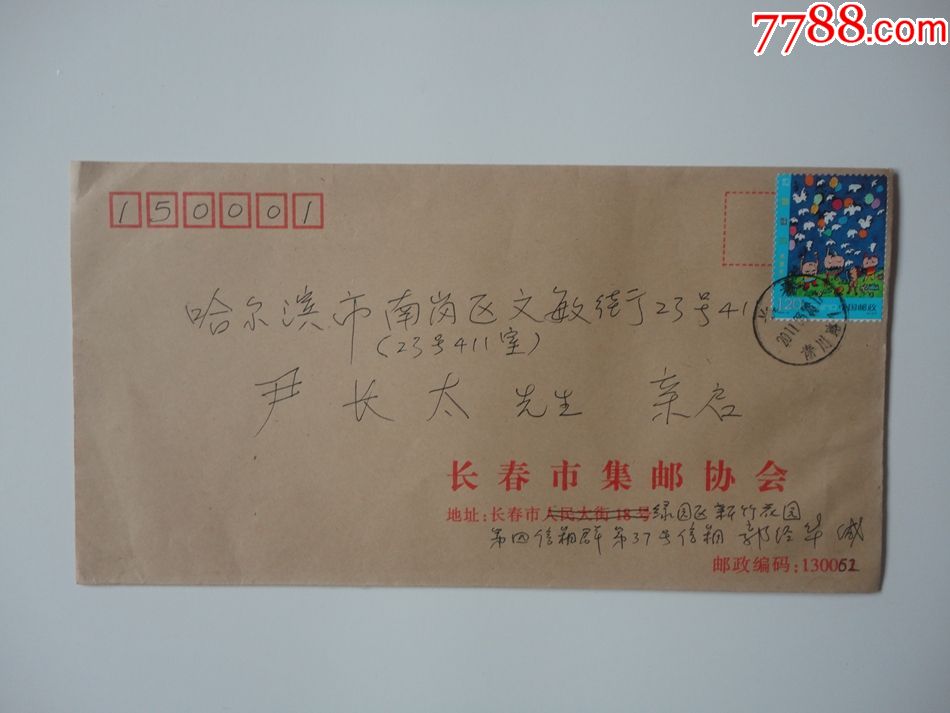 7788.com
150001
120
中国邮政
哈尔滨市南岗区文敏街23号411
(23号411室)
2011
尹长太先生 亲启
长春市集邮协会
地址:长春市人民大街18号绿园区新竹花园
第四信箱群第37号信箱 郭经华 缄
邮政编码:130062